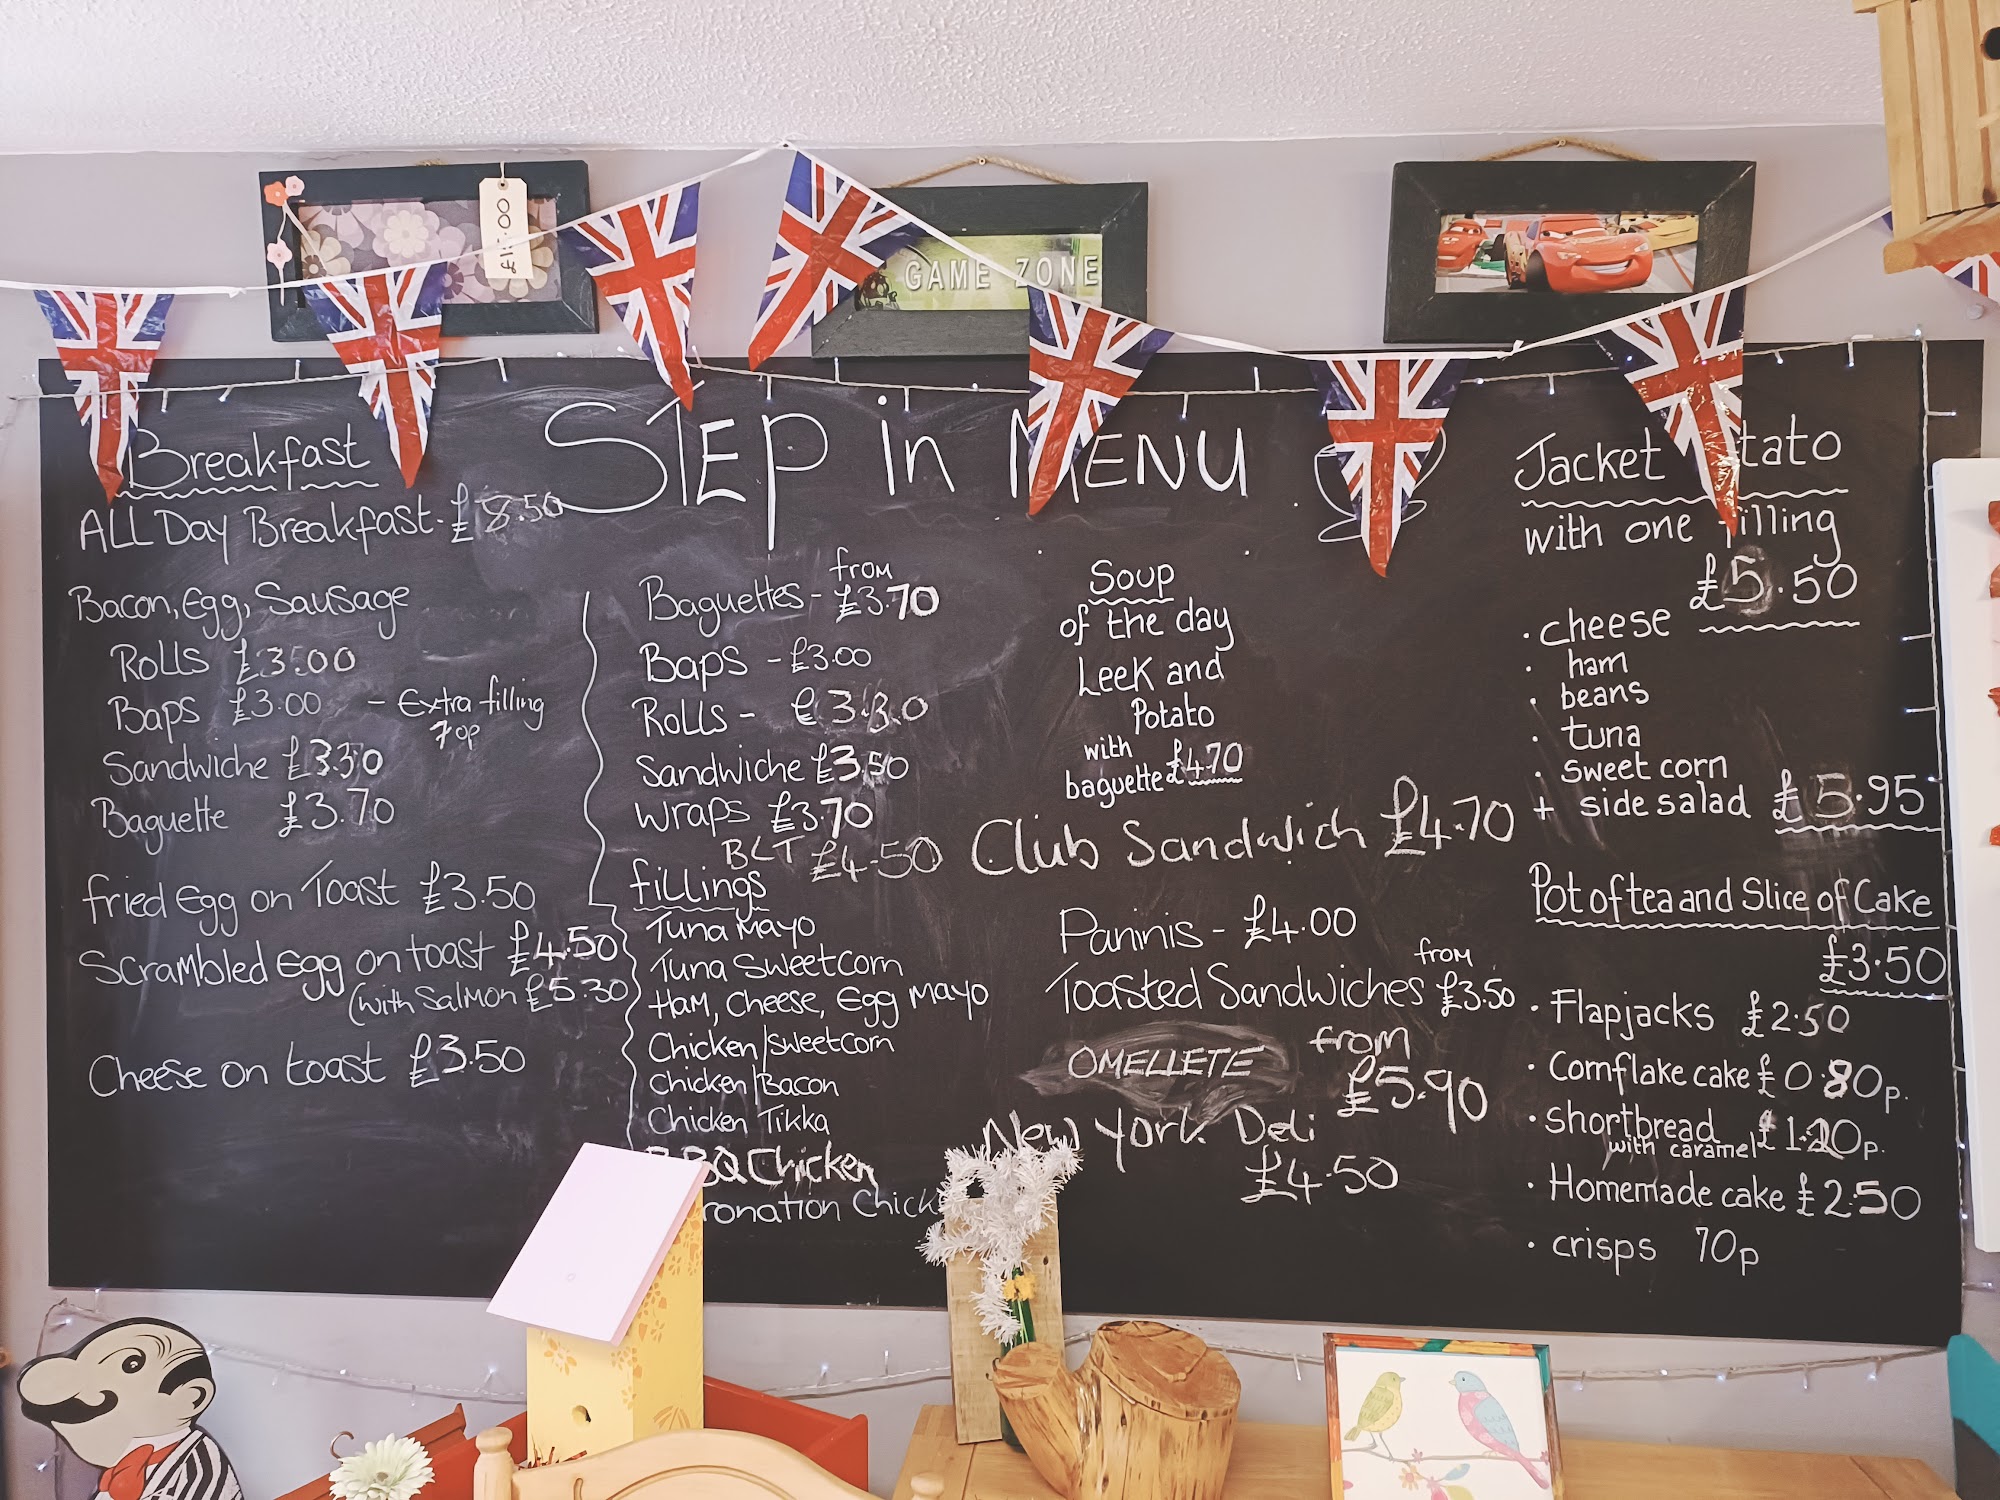 £15.00
GAME ZONE
STEP in MENU
Breakfast
ALL Day Breakfast. £8.50
Bacon, Egg, Sausage
Rolls £3.00
Baps £3.00 - Extra filling
70p
Sandwiche £3.30
Baguette £3.70
fried Egg on Toast £3.50
Scrambled Egg on toast £4.50
(with Salmon £5.30
Cheese on toast £3.50
from
Baguettes - £3.70
Baps - £3.00
Rolls - £3.30
Sandwiche £3.50
wraps £3.70
BLT £4.50
fillings
Tuna Mayo
Tuna Sweetcorn
Ham, Cheese, Egg Mayo
Chicken/Sweetcorn
Chicken/Bacon
Chicken Tikka
BBQ Chicken
ronation Chick
Soup
of the day
Leek and
Potato
with
baguette £4.70
Club Sandwich £4.70
Paninis - £4.00
from
Toasted Sandwiches £3.50
OMELLETE from
£5.90
New York Deli
£4.50
Jacket tato
with one filling
£5.50
· cheese
· ham
· beans
· tuna
· sweet corn
+ side salad £5.95
Pot of tea and Slice of Cake
£3.50
· Flapjacks £2.50
· Cornflake cake £0.80p.
· shortbread £1.20p.
with caramel
· Homemade cake £2.50
· crisps 70p